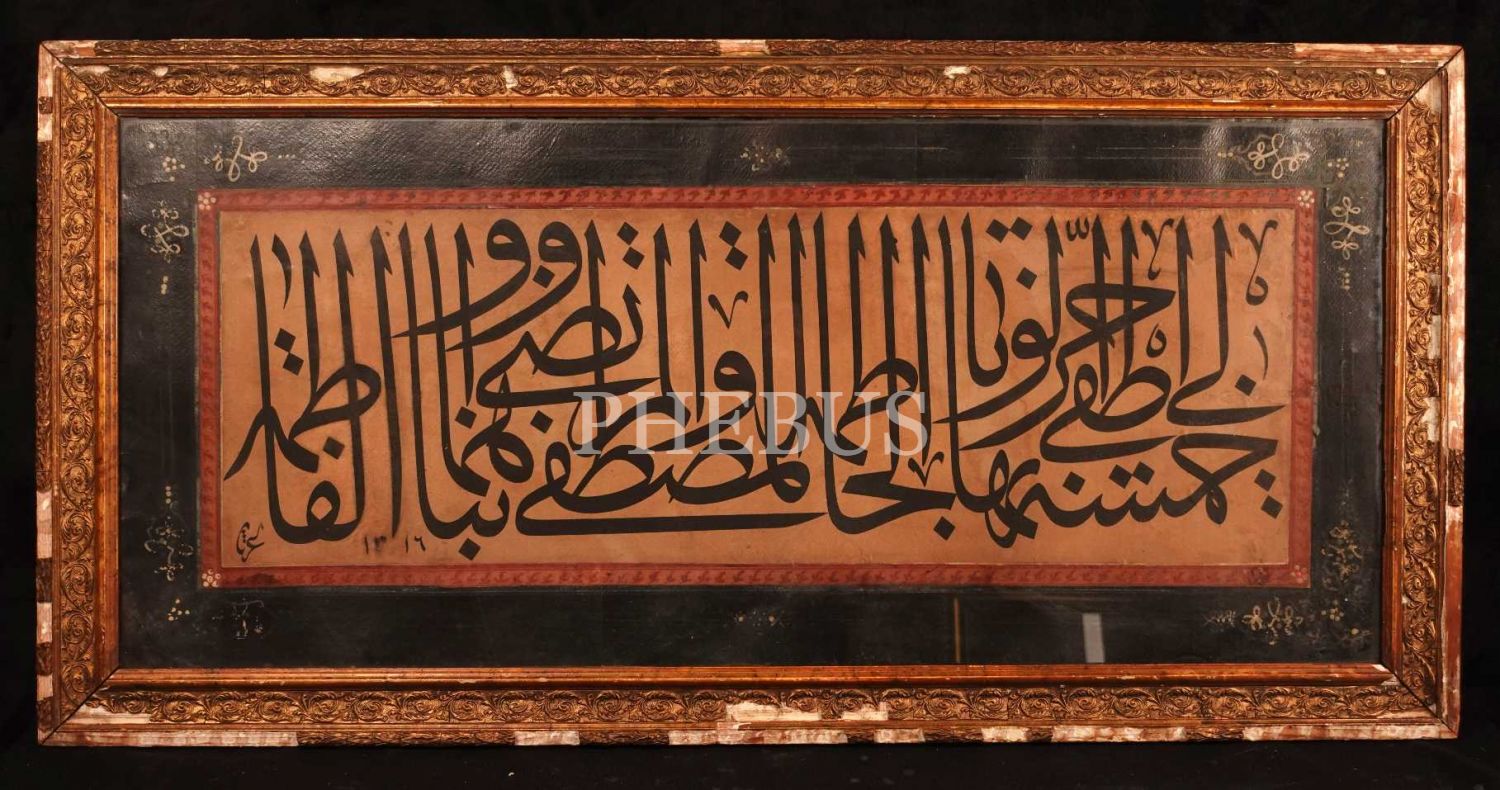 لى خمسة اطفى بها حرّ الوبا الحاطمة
المصطفى والمرتضى وابناهما والفاطمة
١٣١٦
PHEBUS